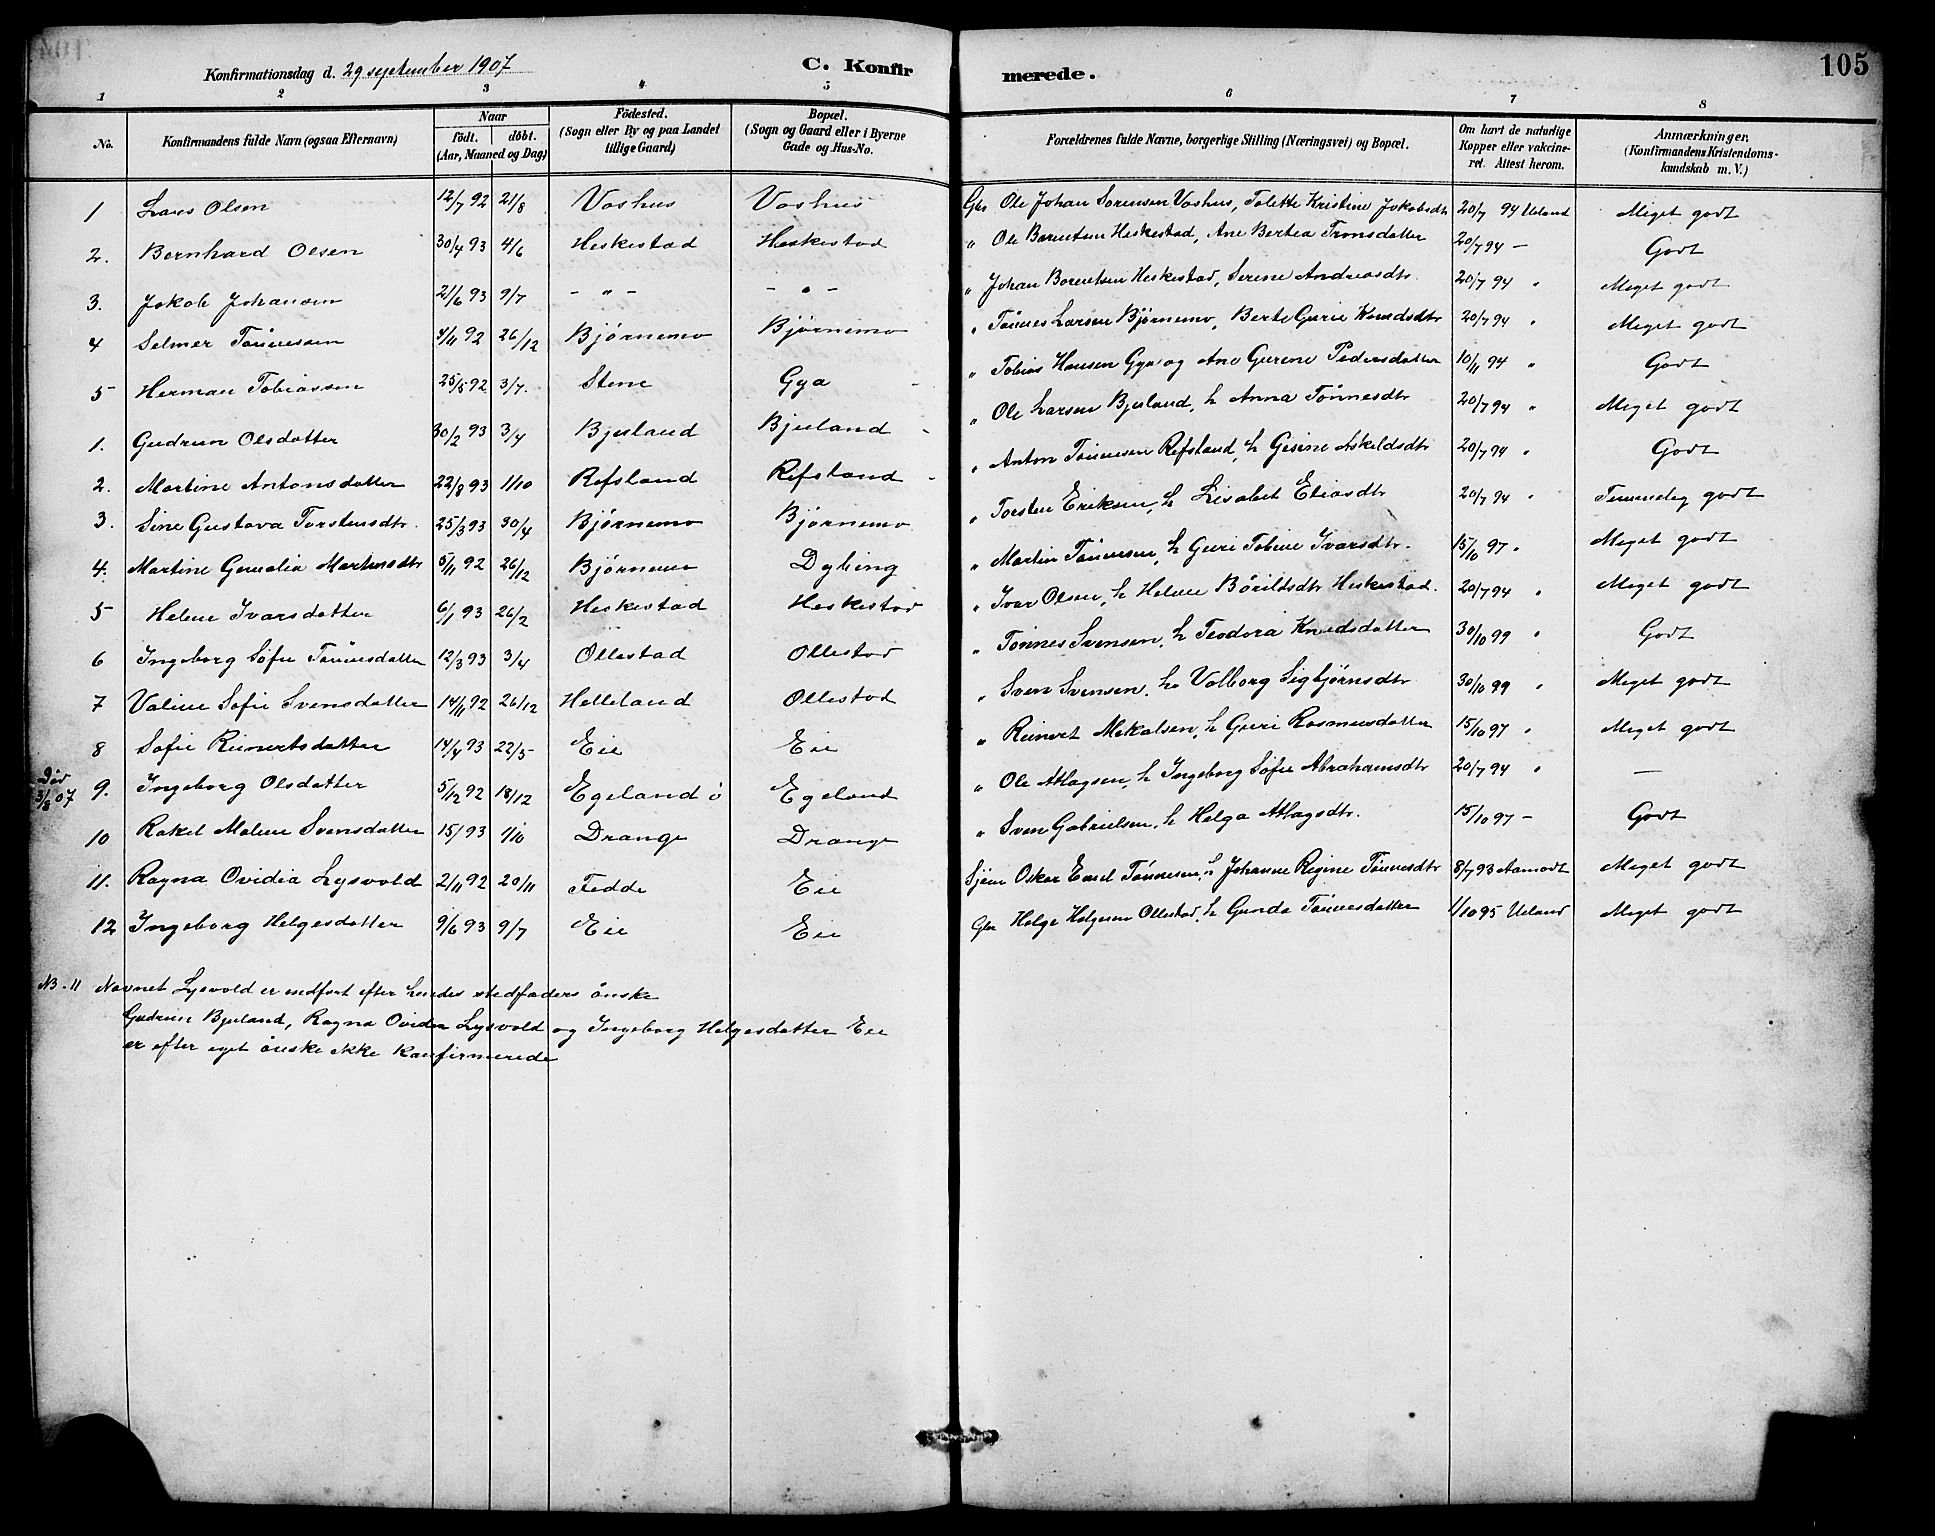 105
Konfirmationsdag d. 29 september 1907 C. Konfirmerede.
1 2 3 4 5 6 7 8
No. Konfirmandens fulde Navn (ogsaa Efternavn) Naar födt. döbt. (Aar, Maaned og Dag) Födested. (Sogn eller By og paa Landet tillige Gaard) Bopæl. (Sogn og Gaard eller i Byerne Gade og Hus-No. Forældrenes fulde Navne, borgerlige Stilling (Næringsvei) og Bopæl. Om havt de naturlige Kopper eller vakcineret. Attest herom. Anmærkninger, (Konfirmandens Kristendomskundskab m. V.)
1 Lars Olsen 12/7 92 21/8 Voshus Voshus Gbr Ole Johan Sorensen Voshus, Tolette Kristine Jakobsdtr 20/7 94 Ueland Meget godt
2. Bernhard Olsen 30/4 93 4/6 Heskestad Heskestad " Ole Barentsen Heskestad, Ane Bertea Tronsdatter 20/7 94 — Godt
3. Jakob Johansen 21/6 93 9/7 - " - - " - " Johan Borentsen Heskestad, Serene Andreasdtr 20/7 94 " Meget godt
4 Selmer Tönnesen 4/11 92 26/12 Bjørnemo Bjørnemo " Tönnes Larsen Bjørnemo, Berte Gurie Knudsdtr 20/7 94 " Meget godt
5 Herman Tobiassen 25/5 92 3/7. Stene Gya " Tobias Hansen Gya og Ane Gurine Pedersdatter 10/11 94 " Godt
1. Gudrun Olsdatter 30/2 93 3/4 Bjuland Bjuland " Ole Larsen Bjuland, h Anna Tönnesdtr 20/7 94 " Meget godt
2. Martine Antonsdatter 22/8 93 1/10 Refsland Refsland " Anton Tönnesen Refsland, h Gesine Askeldsdtr 20/7 94 " Godt
3. Sine Gustava Torstensdtr. 25/3 93 30/4 Bjørnemo Bjørnemo " Torsten Eriksen, h Lisabet Eliasdtr 20/7 94 " Temmelig godt
4. Martine Gunalia Martinsdtr 5/11 92 26/12 Bjørnemo Dybing " Martin Tönnesen, h Guri Tobine Ivarsdtr. 15/10 97 " Meget godt
5 Helene Ivarsdatter 6/1 93 26/2 Heskestad Heskestad " Ivar Olsen, h Helene Börildsdtr Heskestad. 20/7 94 " Meget godt
6 Ingeborg Sofie Tönnesdatter 12/3 93 3/4 Ollestad Ollestad " Tönnes Svensen, h Teodora Knudsdatter 30/10 99 " Godt
7 Valine Sofie Svensdatter 14/11 92 26/12 Helleland Ollestad " Sven Svensen, h Valborg Sigbjørnsdtr 30/10 99 " Meget godt
8 Sofie Reinertsdatter 14/4 93 22/5 Eie Eie " Reinert Mekalsen, h Guri Rasmusdatter 15/10 97 " Meget godt
Död 3/8 07 9. Ingeborg Olsdatter 5/12 92 18/12 Egeland ö Egeland " Ole Atlagsen, h Ingeborg Sofie Abrahamsdtr 20/7 94 " —
10 Rakel Malene Svensdatter 15/ 93 1/10 Drange Drange " Sven Gabrielsen, h Helga Atlagsdtr. 15/10 97 — Godt
11. Ragna Ovidia Lysvold 2/11 92 20/11 Fedde Eie Sjøm Oskar Emil Tönnesen, h Johanne Regine Tönnesdtr 8/7 93 Aamodt Meget godt
12 Ingeborg Helgesdatter 9/6 93 9/7 Eie Eie Gbr Helge Helgesen Ollestad, h Gunda Tönnesdatter 1/10 95 Ueland Meget godt
NB. 11 Navnet Lysvold er indført efter hendes stedfaders önske
Gudrun Bjuland, Ragna Ovidia Lysvold og Ingeborg Helgesdatter Eie
er efter eget önske ikke konfirmerede